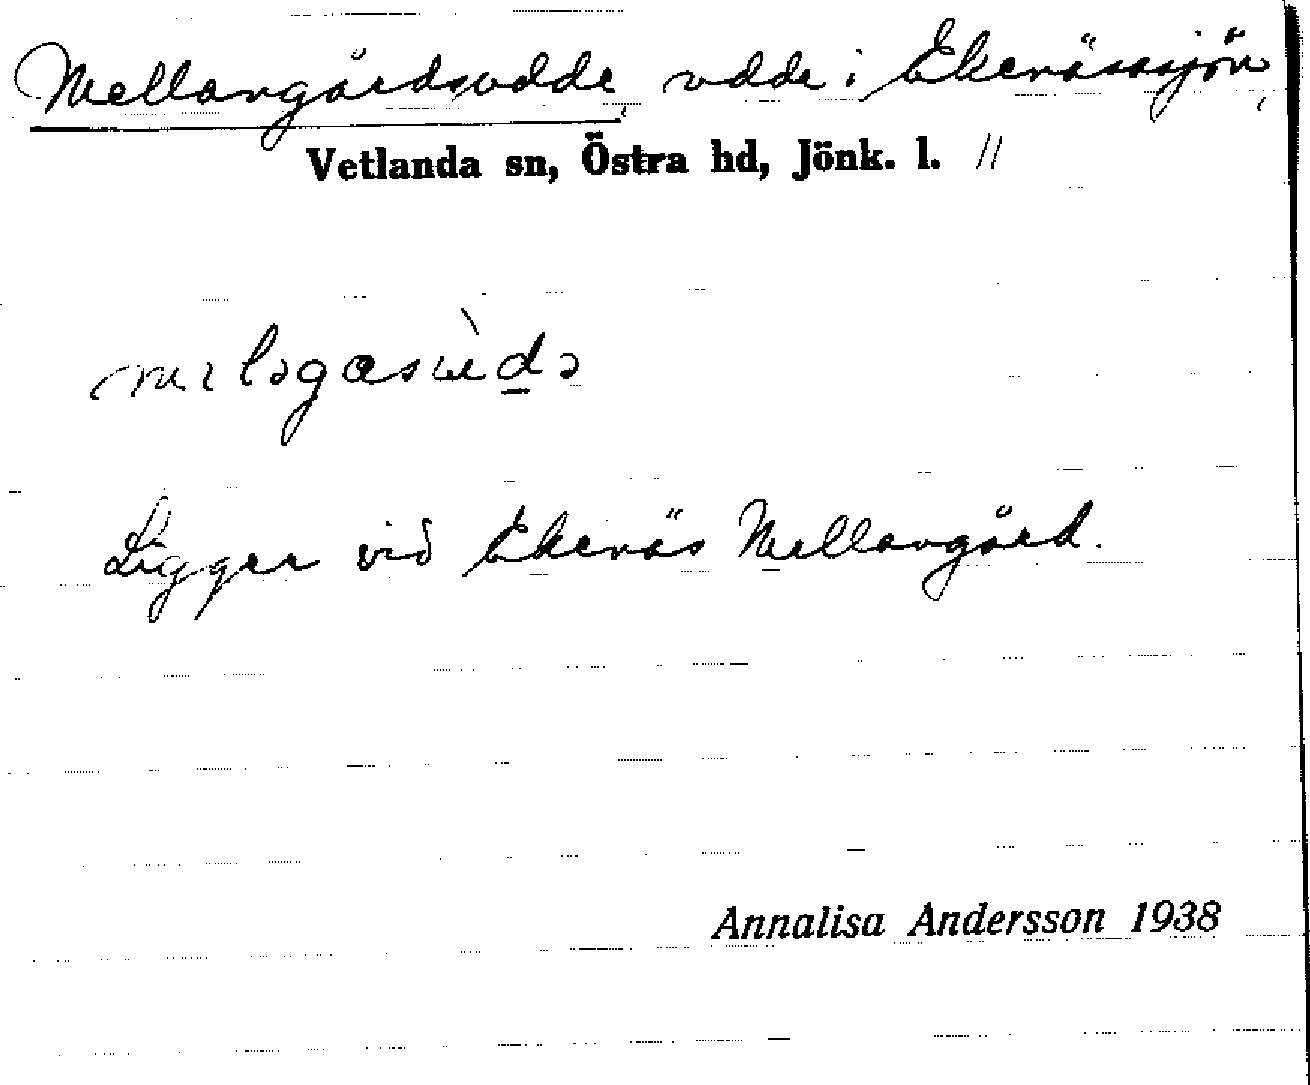 Mellangårdsudde, udde i Ekenässjön,
Vetlanda sn, Östra hd, Jönk. l. 11
Ligger vid Ekenäs Mellangård.
Annalisa Andersson 1938